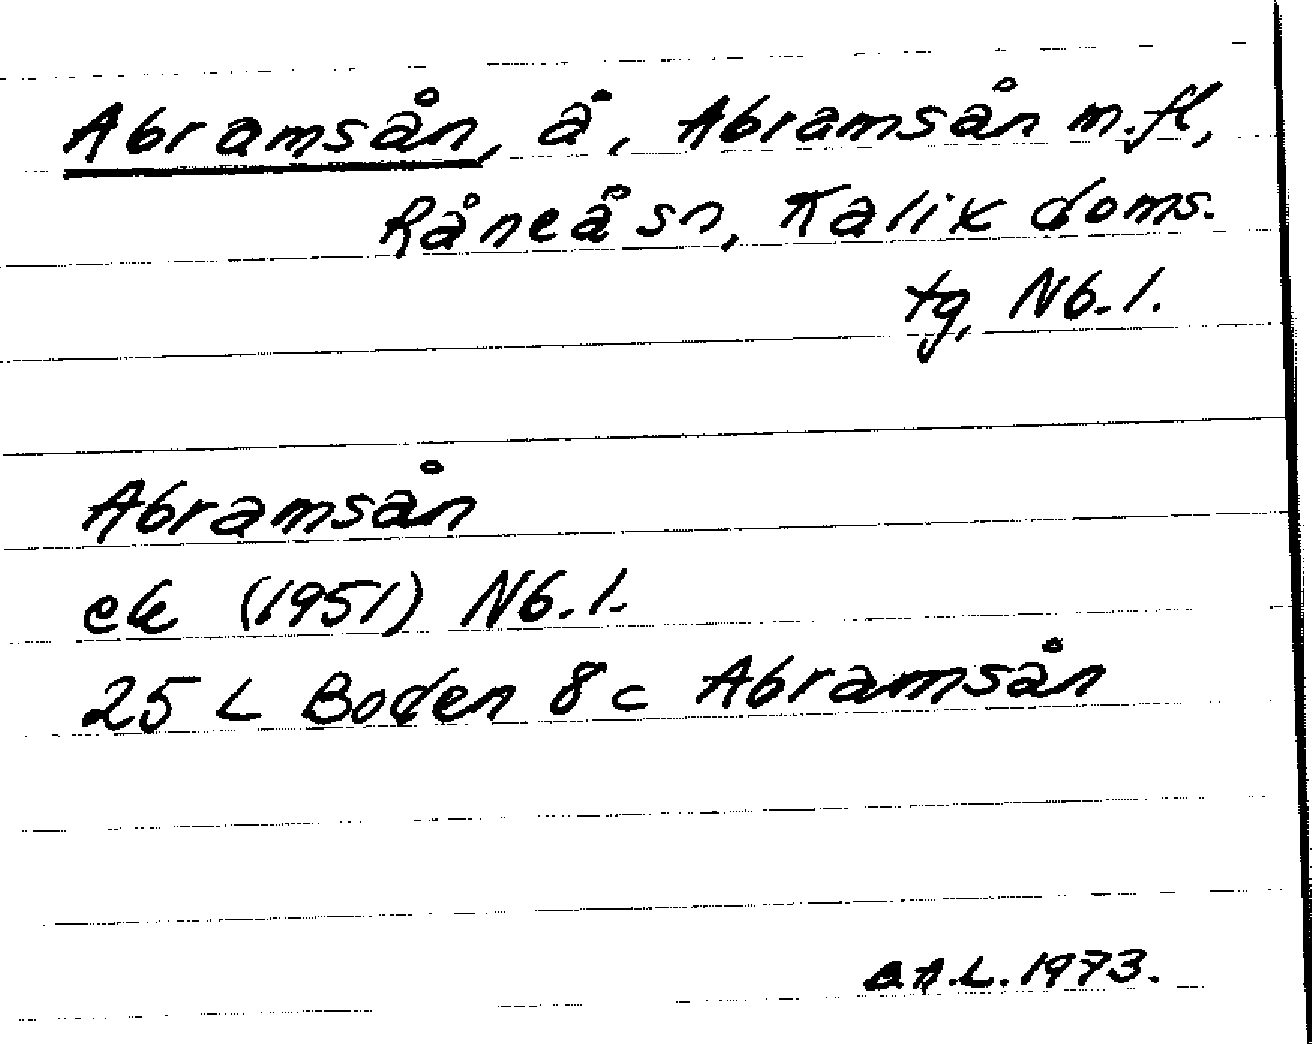 Abramsån, å, Abramsån m.fl,
Råneå sn, Kalix doms.
tg, Nb. l.
Abramsån
ek (1951) Nb. l.
25 L Boden 8 c Abramsån
A.L. 1973.